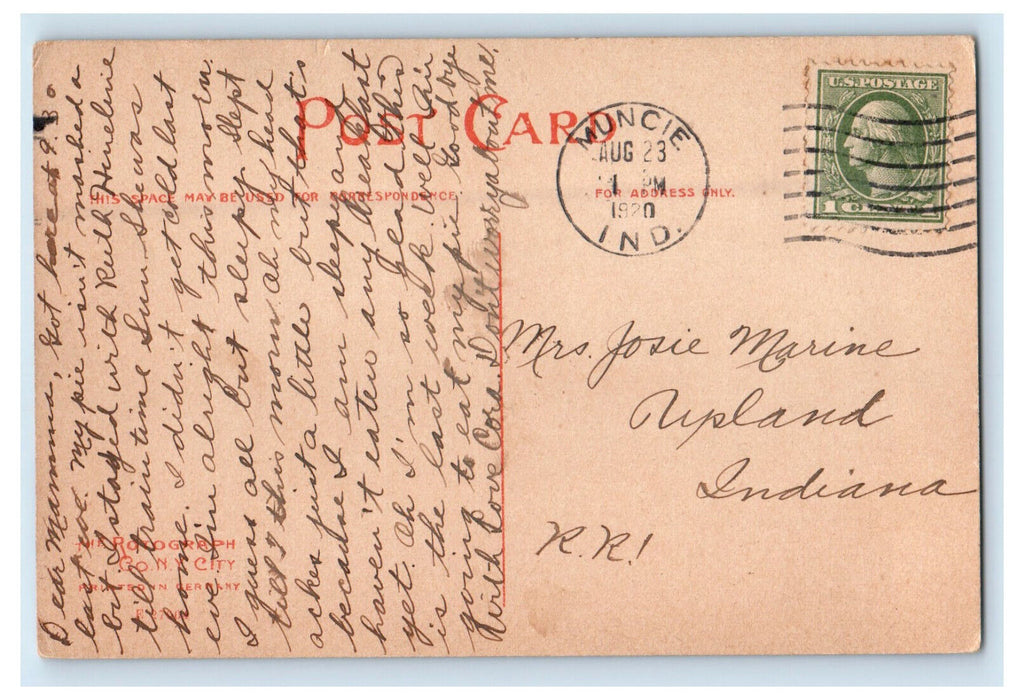 POST CARD
THIS SPACE MAY BE USED FOR CORRESPONDENCE
FOR ADDRESS ONLY.
MUNCIE
AUG 23
PM
1920
IND.
U.S. POSTAGE
1
Dear Mamma: Got here at 9:30
last nt. My pie isn't mashed a
bit I stayed with Ruth Heineline
till train time Sun. She was
home. I didn't get cold last
eve. I'm alright this morn.
I guess all but sleep. Slept
till 7 this morn. Oh my head
aches just a little but that's
because I am sleepy and
haven't eaten any breakfast
yet. Oh I'm so glad this
is the last week. Well I'm
going to eat my pie. Good bye
With Love Cora. Don't worry about me!
Mrs. Josie Marine
Upland
Indiana
R.R.1
THE ROTOGRAPH
CO. N.Y. CITY
PRINTED IN GERMANY